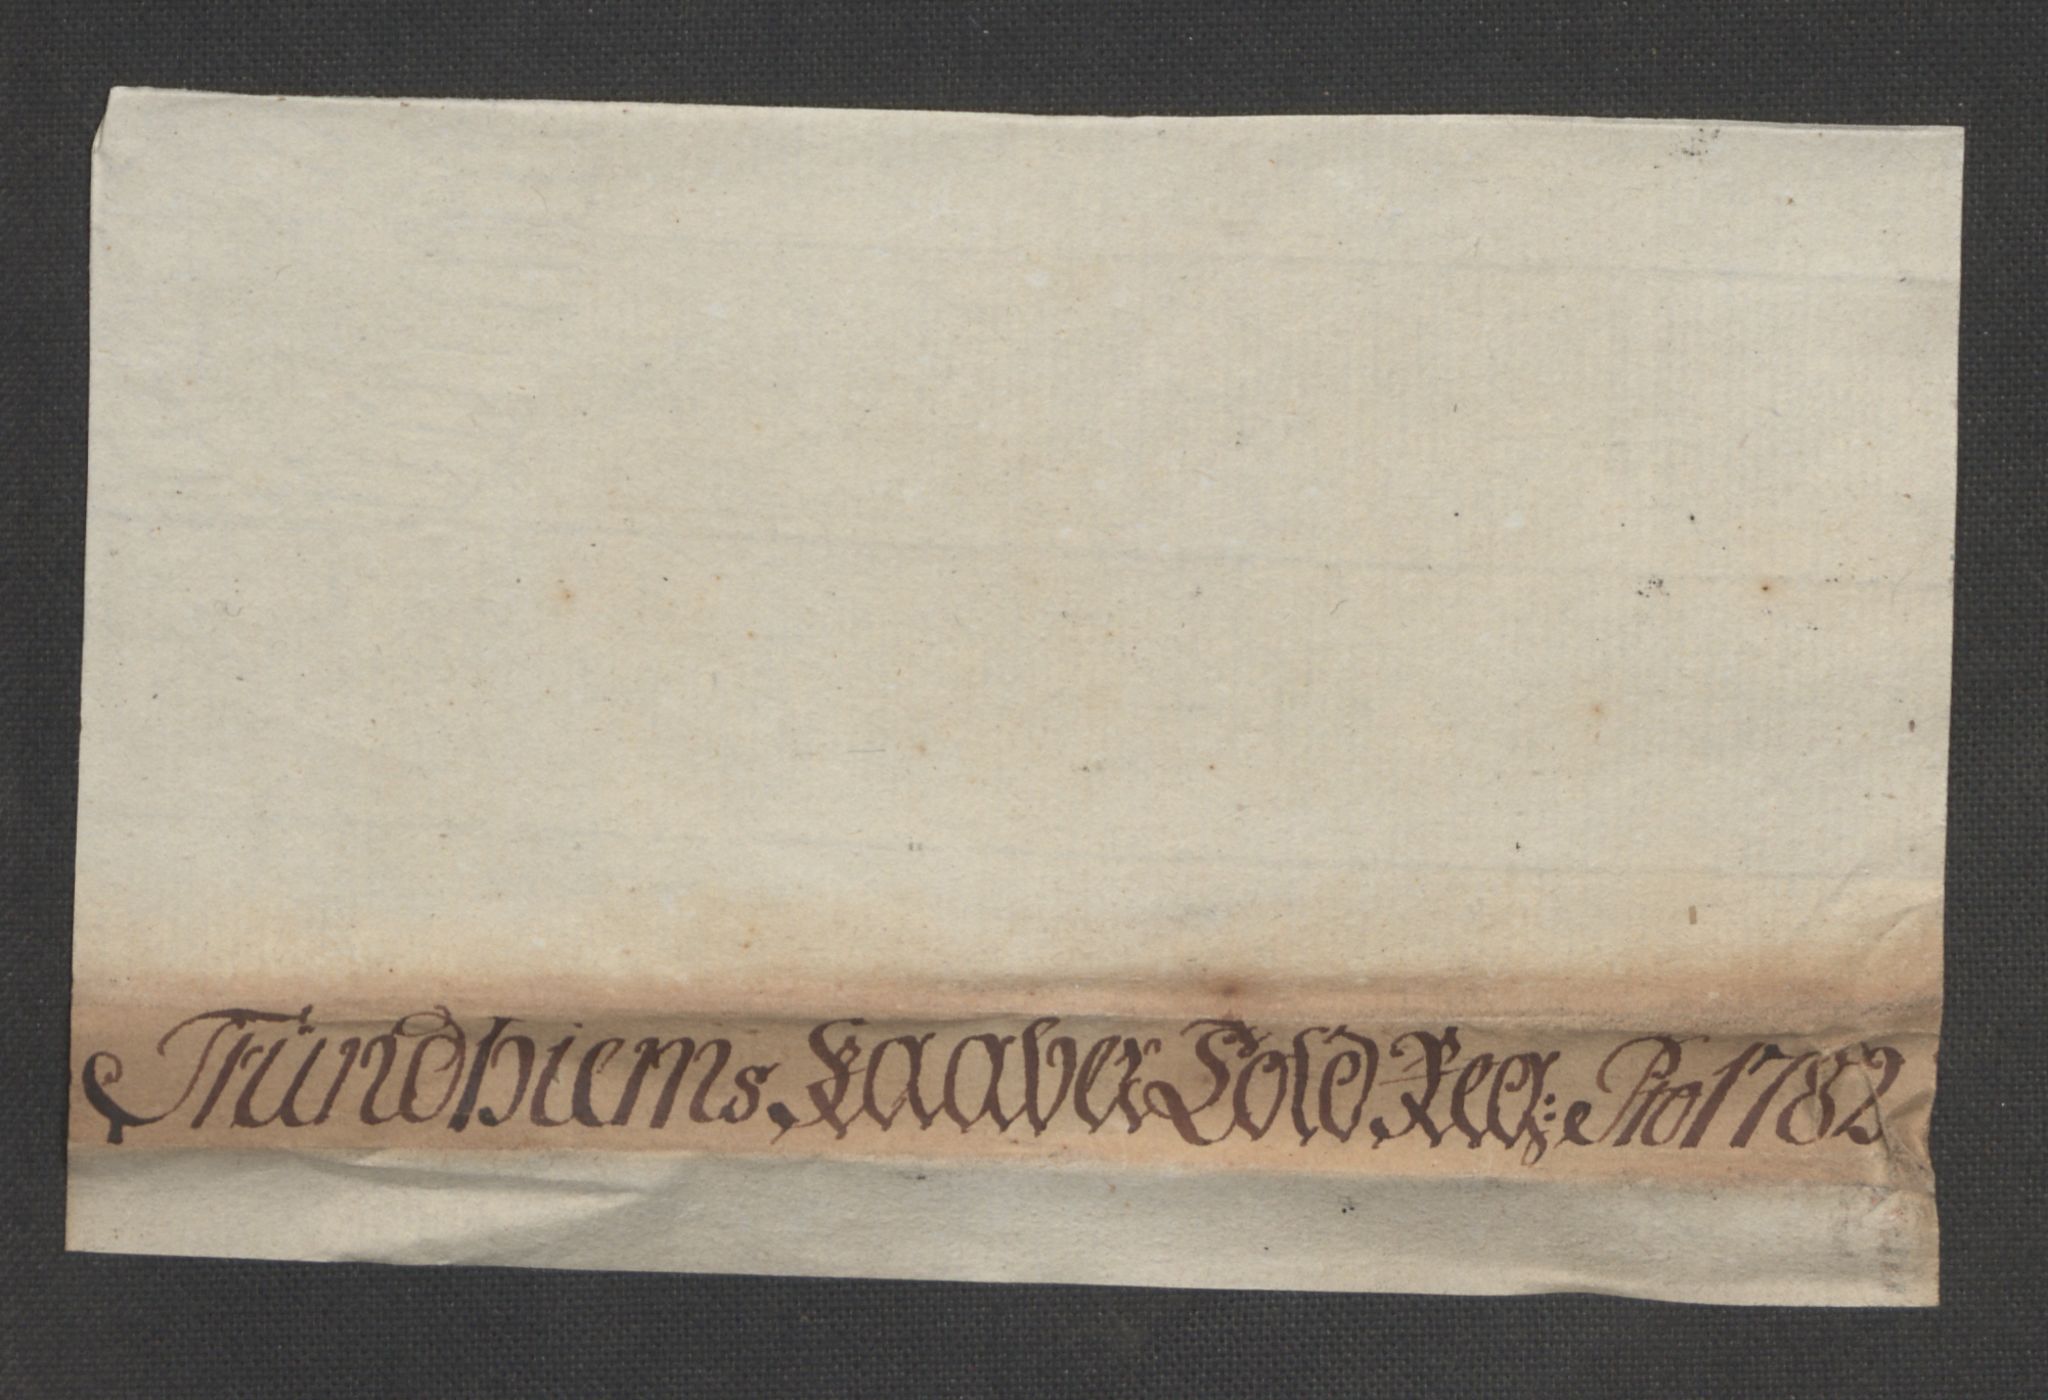 Trundhiems Kaaber Told Reg: Pro 1782